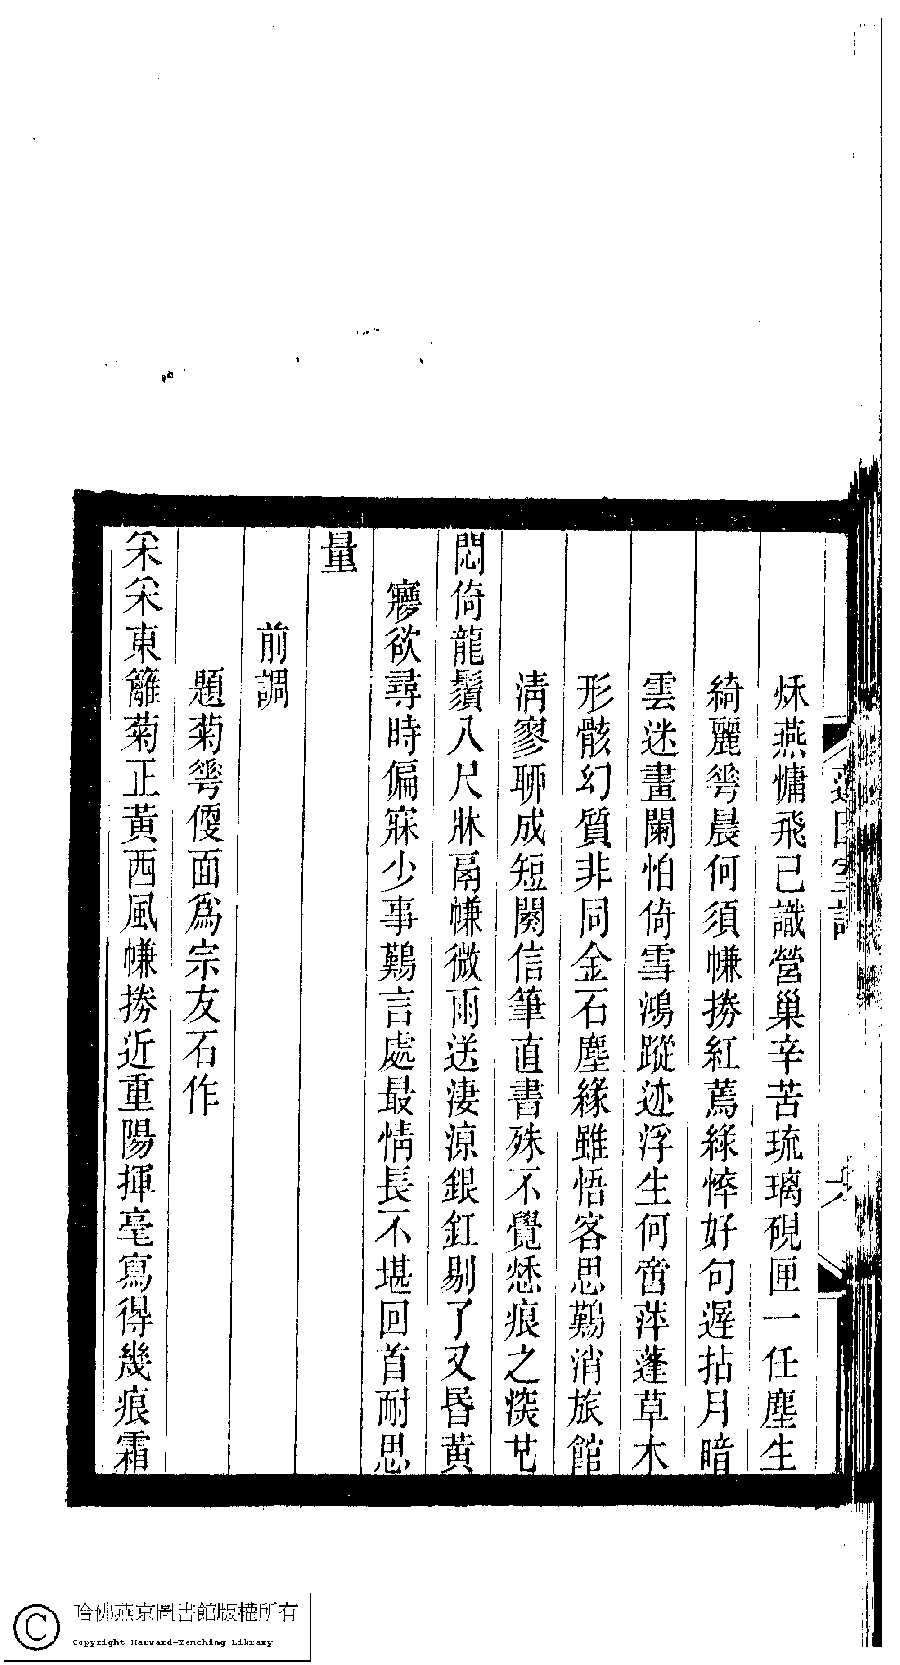 秌燕慵飛已識營巢辛苦琉璃硯匣一任塵生
綺麗芲晨何須㡘捲紅蔫綠悴好句遲拈月暗
雲迷畫闌怕倚雪鴻蹤迹浮生何啻萍蓬草木
形骸幻質非同金石塵緣雖悟客思難消旅館
淸寥聊成短闋信筆直書殊不覺愁痕之深也
悶倚龍鬚八尺牀鬲㡘微雨送淒涼銀釭剔了又昏黃
寱欲尋時偏寐少事難言處最情長不堪回首耐思
量
前調
題菊芲便面爲宗友石作
采采東籬菊正黃西風㡘捲近重陽揮毫寫得幾痕霜
哈佛燕京圖書館版權所有
Copyright Harvard-Yenching Library